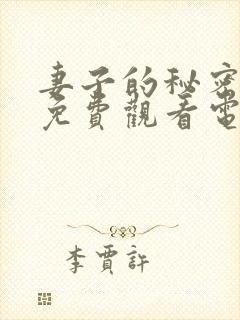 妻子的秘密
免費觀看電
李賈許